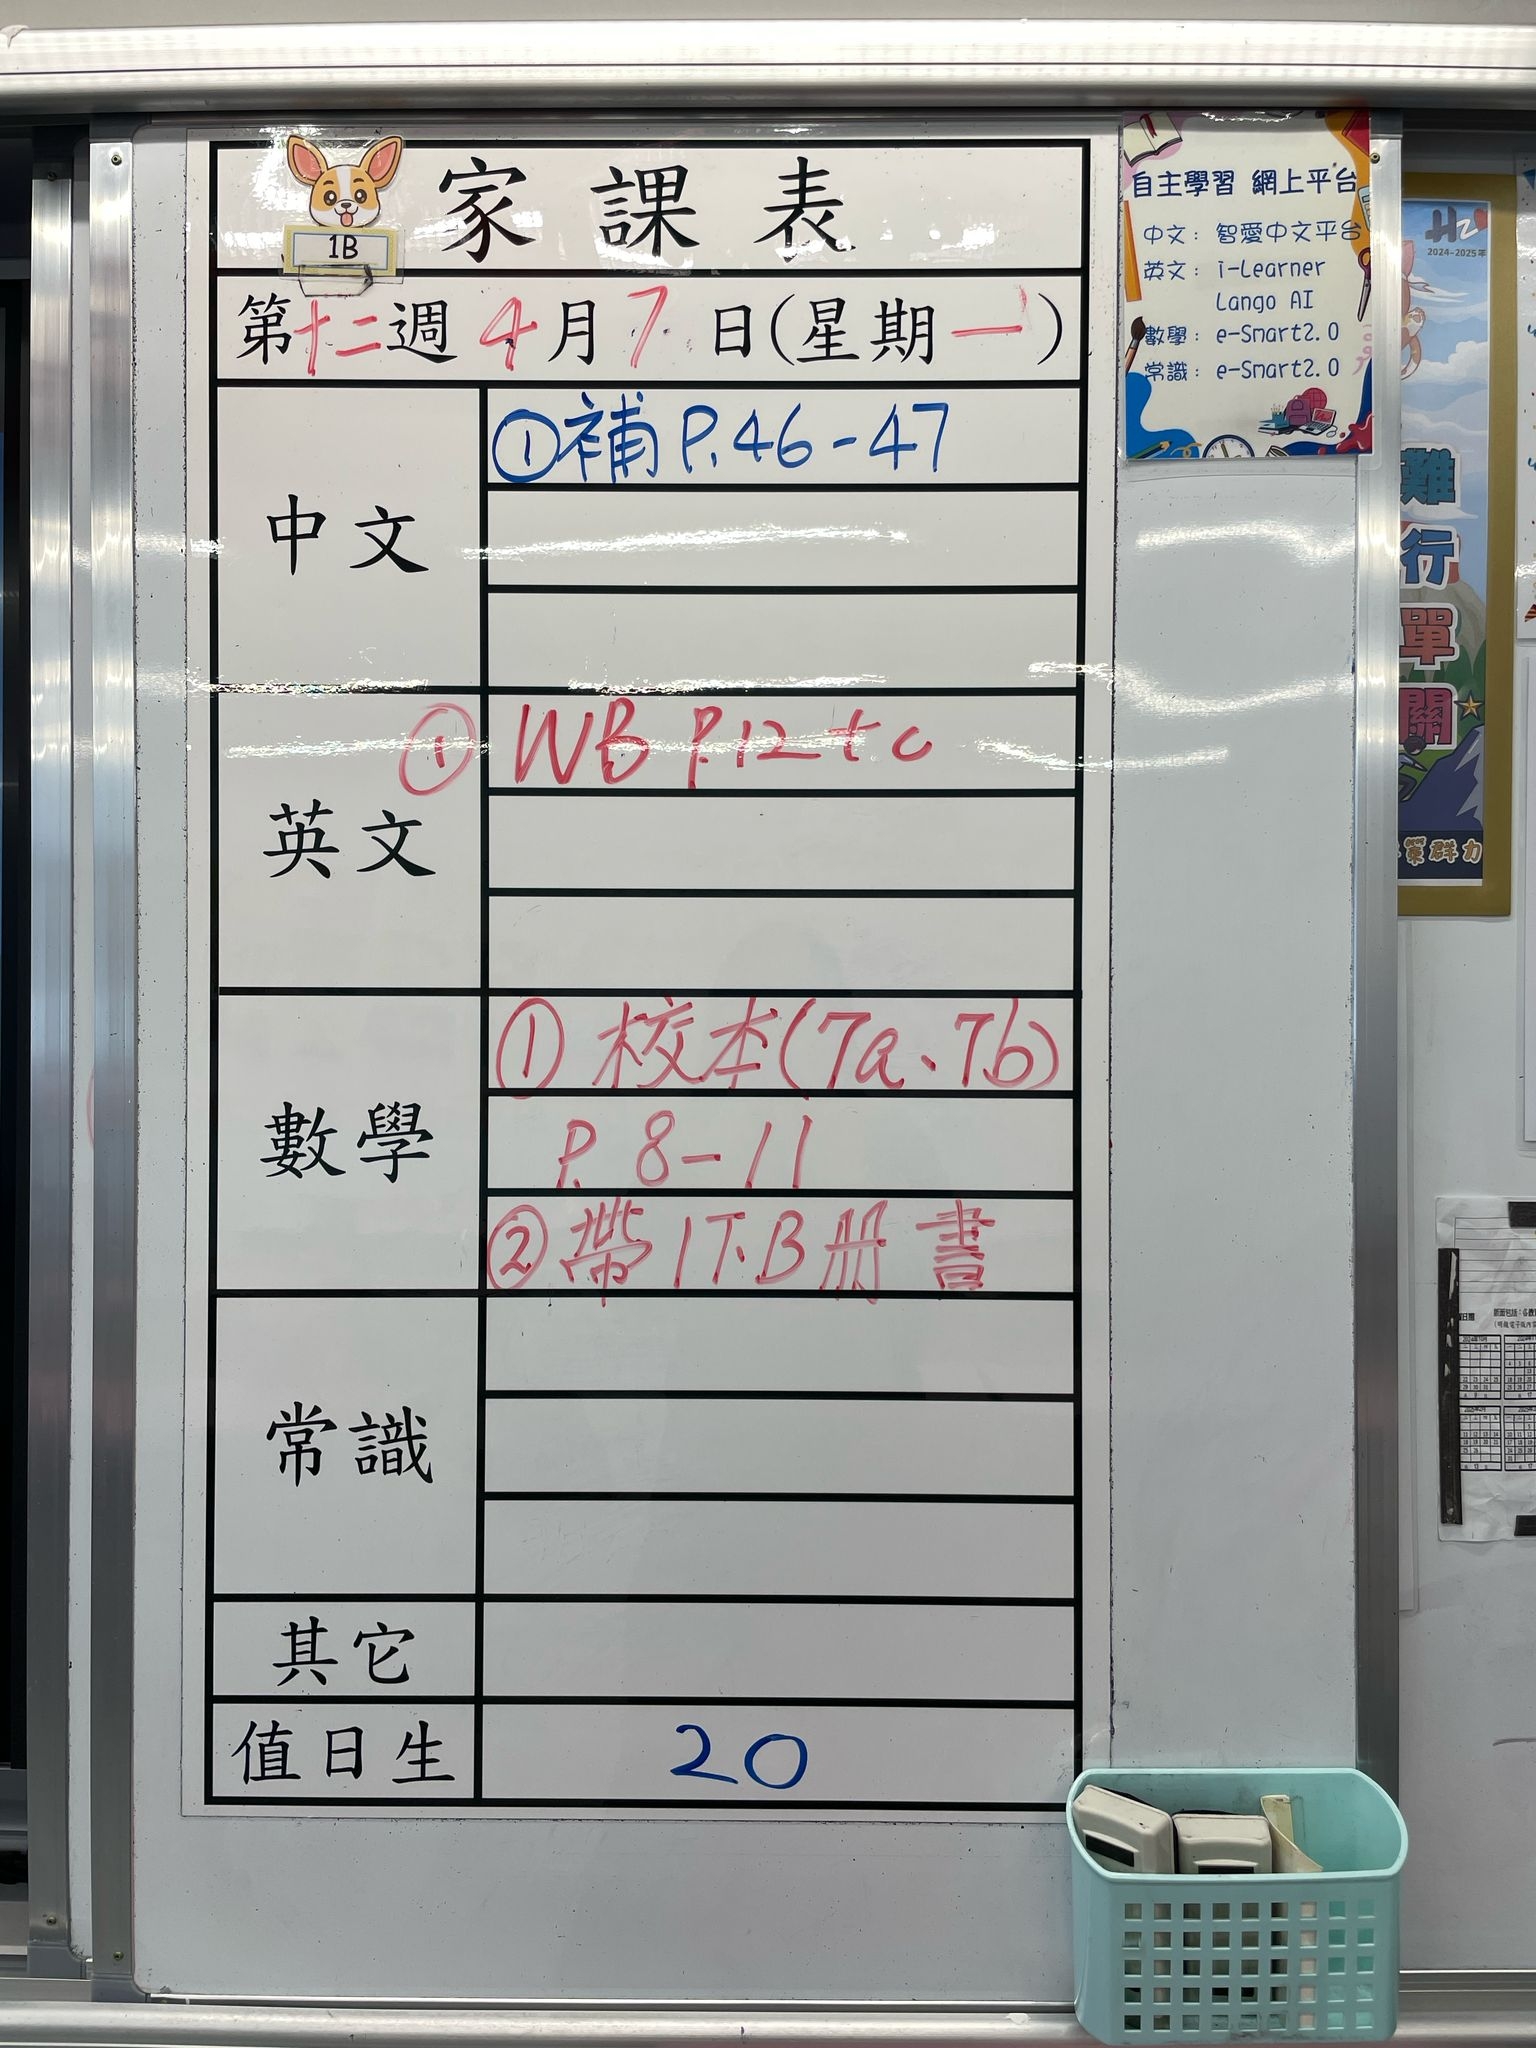 家課表
1B
第十二週 4月7日(星期一)
中文
①補 P.46-47
英文
① WB P.12 + c
數學
① 校本(7a、7b)
P. 8-11
② 帶 1下B冊書
常識
其它
值日生
20
自主學習 網上平台
中文: 智愛中文平台
英文: i-Learner
Lango AI
數學: e-Smart2.0
常識: e-Smart2.0
2024-2025年
難
行
單
關
策群力